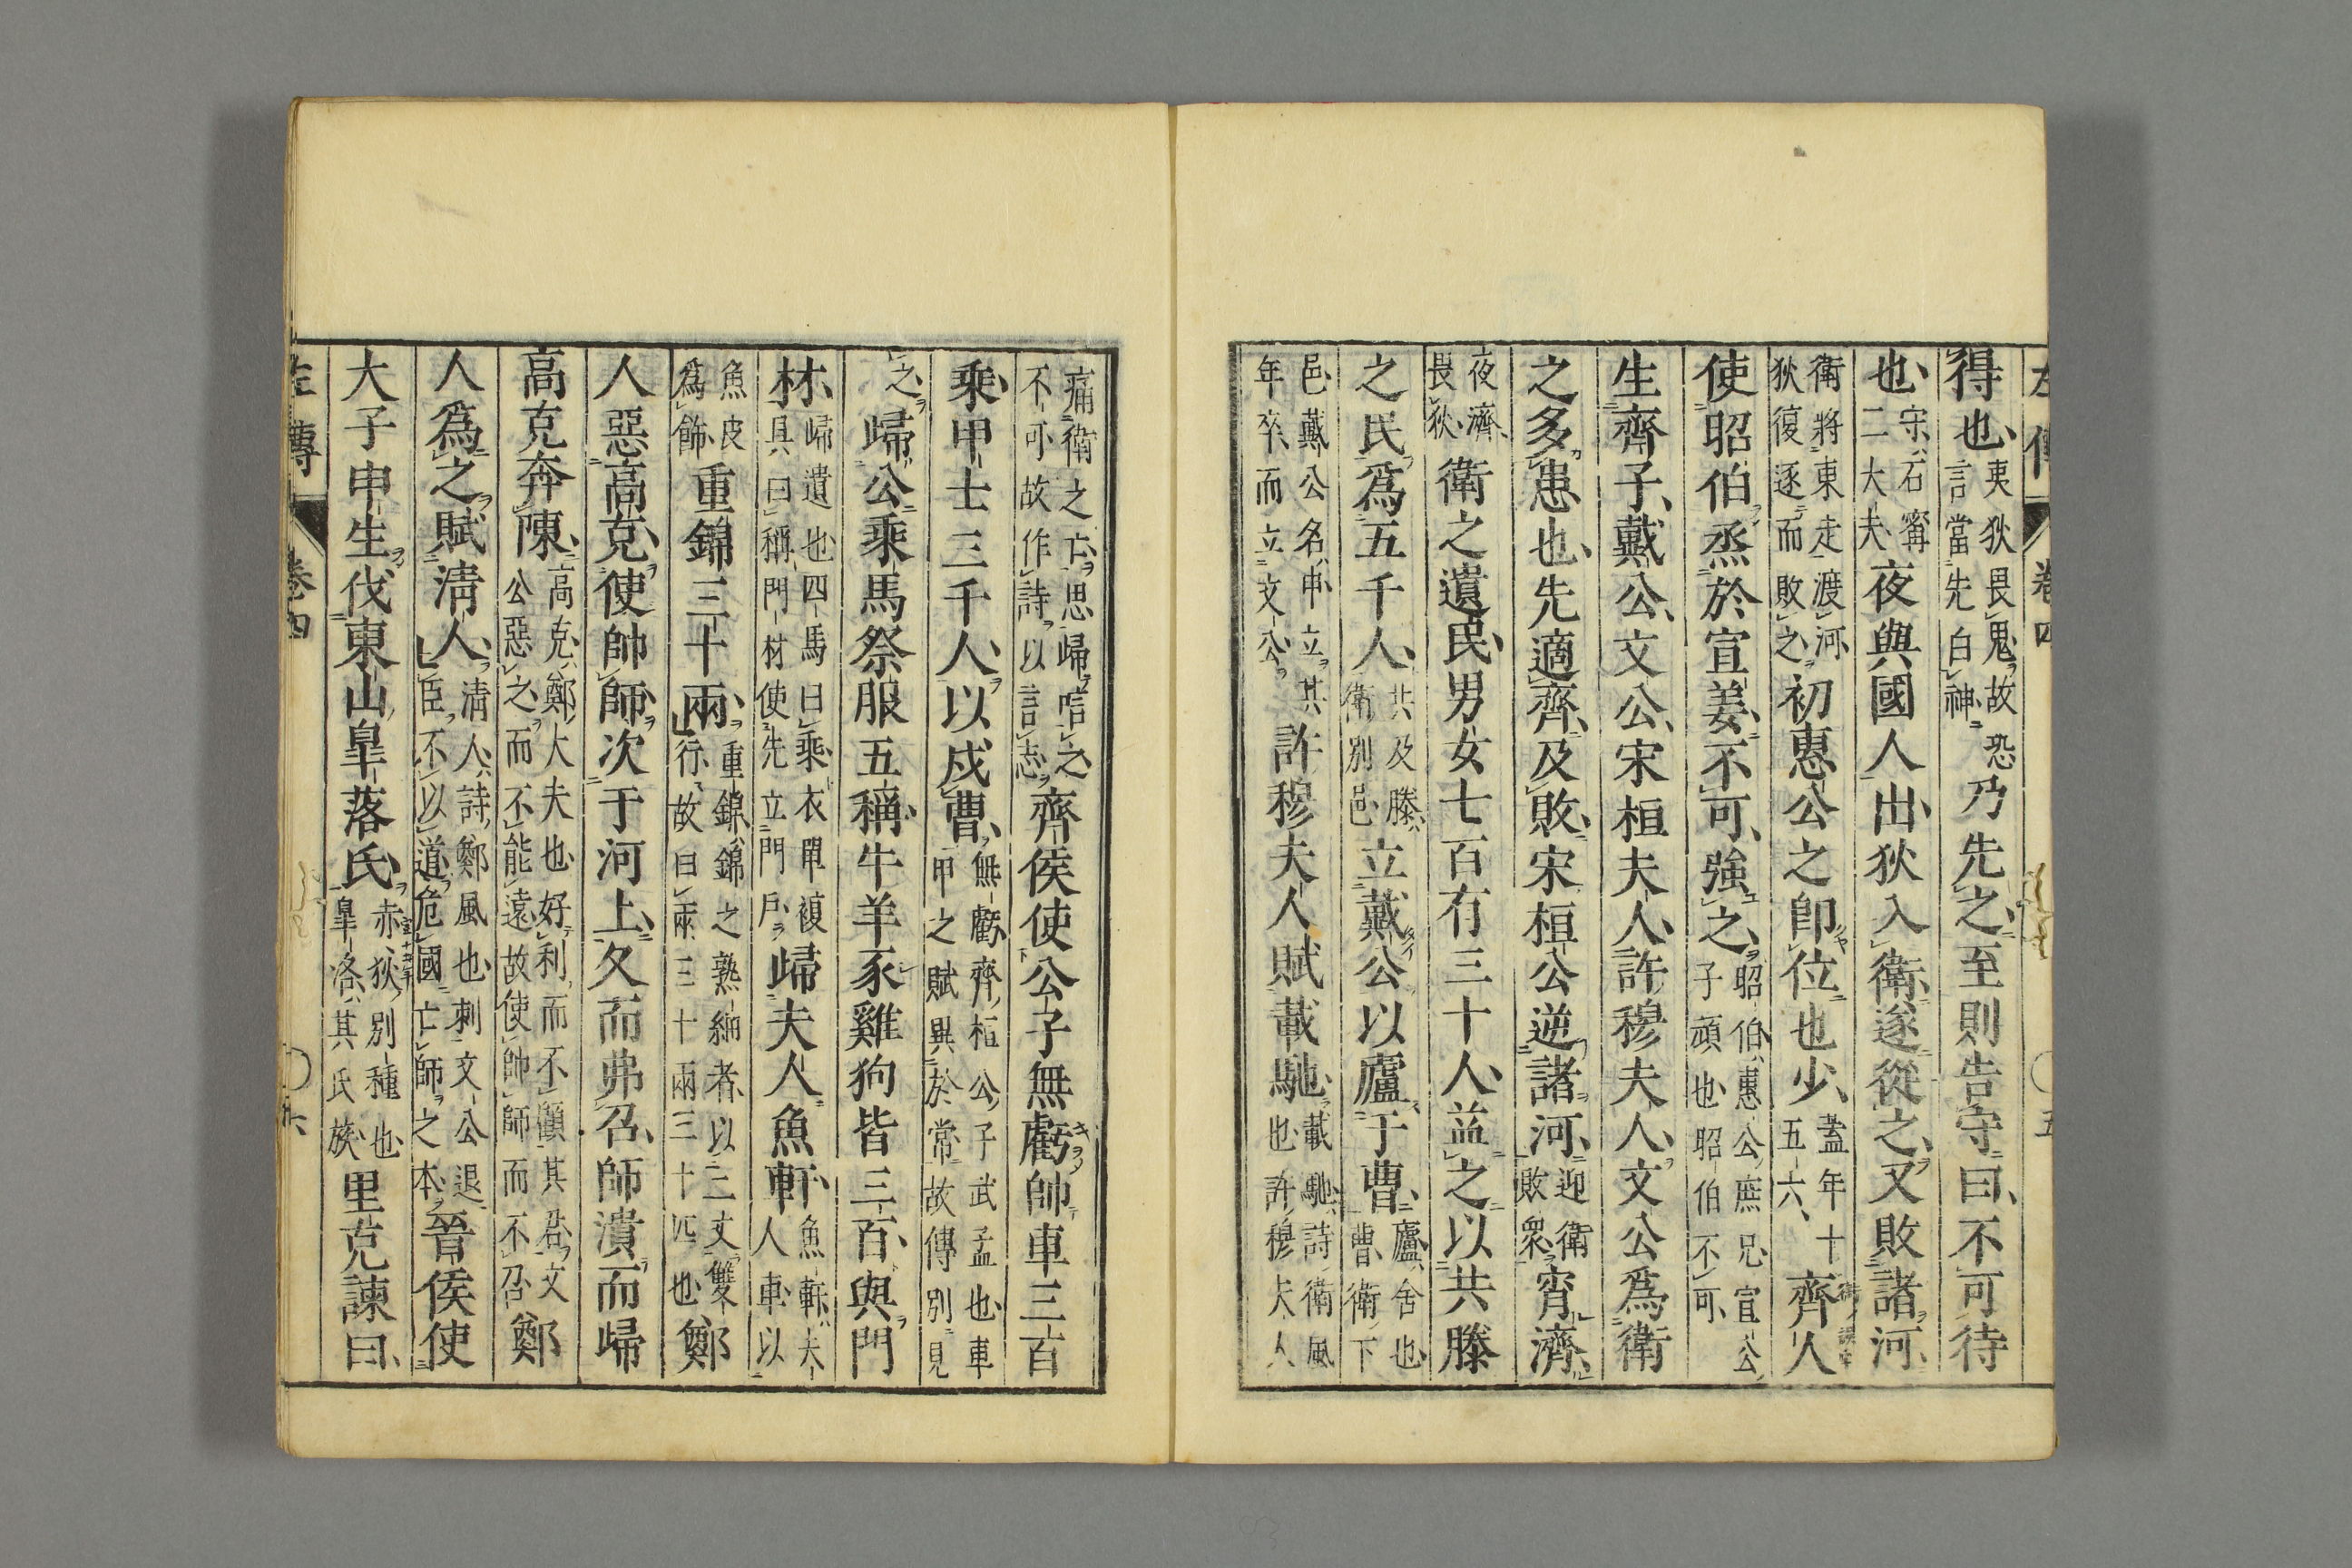 左傳 卷四 ○五
得也夷狄畏鬼故恐言當先白神乃先之至則告守曰不可待
也守石甯二大夫夜與國人出狄入衛遂從之又敗諸河
衛將東走渡河狄復逐而敗之初惠公之卽位也少蓋年十五六齊人
使昭伯烝於宣姜不可強之昭伯惠公庶兄宣公子頑也昭伯不可
生齊子戴公文公宋桓夫人許穆夫人文公爲衛
之多患也先適齊及敗宋桓公逆諸河迎衛敗衆宵濟
夜濟畏狄衛之遺民男女七百有三十人益之以共滕
之民爲五千人共及滕衛別邑立戴公以廬于曹廬舍也曹衛下
邑戴公名申立其年卒而立文公許穆夫人賦載馳載馳詩衛風也許穆夫人
痛衛之亡思歸唁之不可故作詩以言志齊侯使公子無虧帥車三百
乘甲士三千人以戍曹無虧齊桓公子武孟也車甲之賦異於常故傳別見
之歸公乘馬祭服五稱牛羊豕雞狗皆三百與門
材歸遺也四馬曰乘衣單複具曰稱門材使先立門戶歸夫人魚軒魚軒夫人車以
魚皮爲飾重錦三十兩重錦錦之熟細者以二丈雙行故曰兩三十兩三十匹也鄭
人惡高克使帥師次于河上久而弗召師潰而歸
高克奔陳高克鄭大夫也好利而不顧其君文公惡之而不能遠故使帥師而不召鄭
人爲之賦淸人淸人詩鄭風也刺文公退臣不以道危國亡師之本晉侯使
大子申生伐東山臯落氏赤狄別種也臯洛其氏族里克諫曰
左傳 卷四 ○六